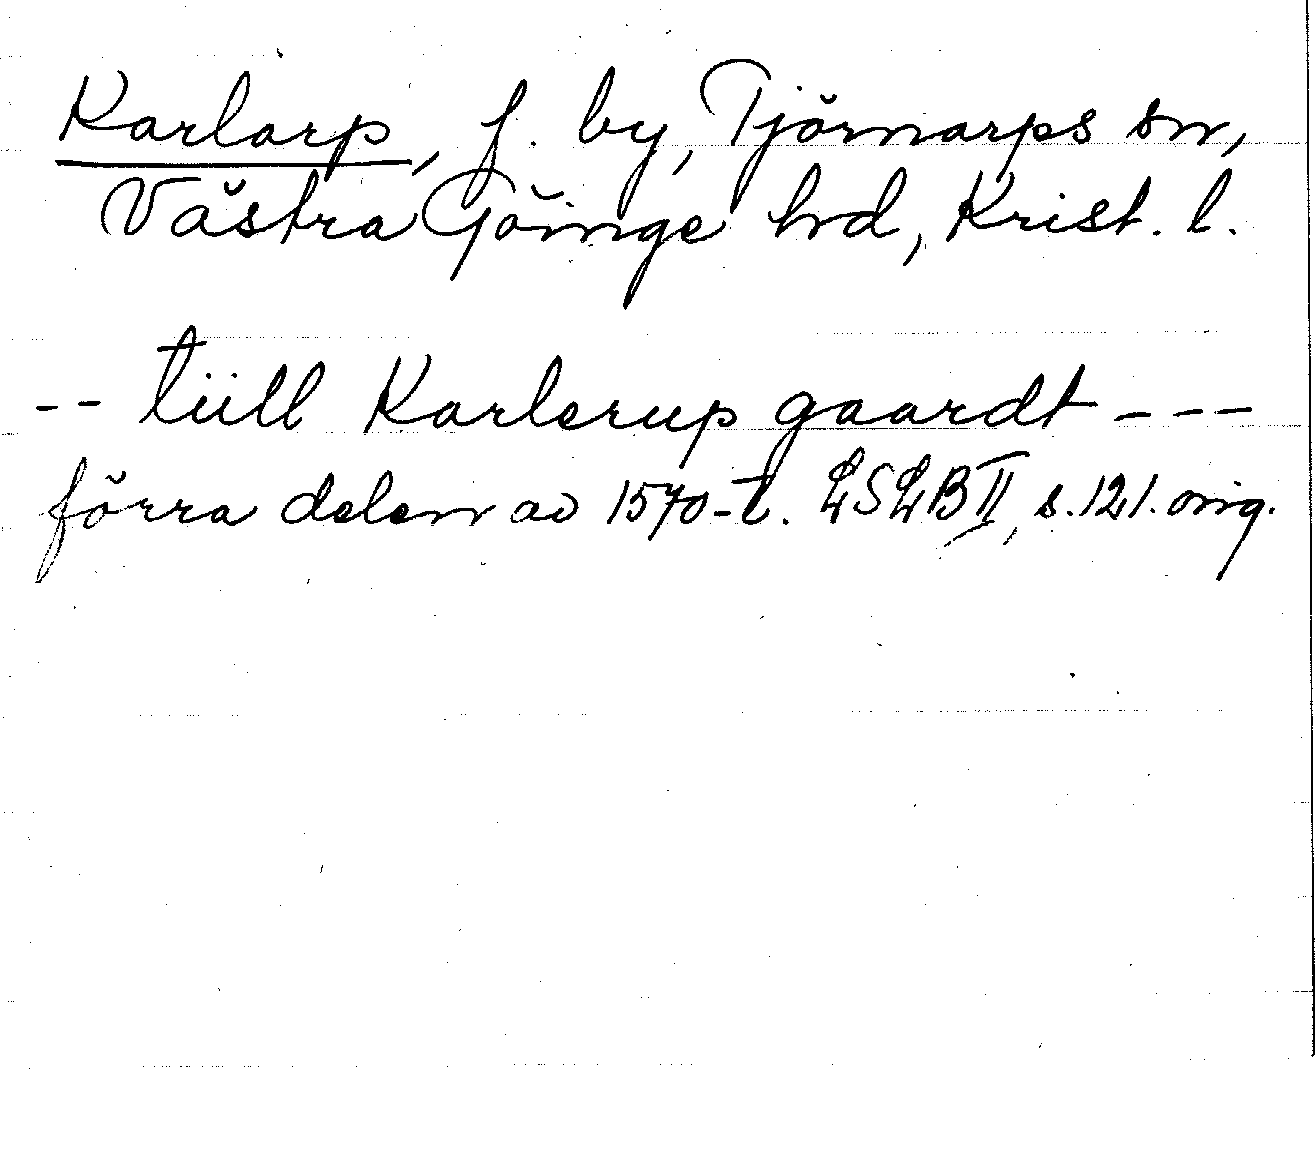 Karlarp, f. by, Tjörnarps sn,
Västra Göinge hrd, Krist. l.
-- tiill Karlerup gaardt ---
förra delen av 1570-t. LSLB II, s. 121. orig.